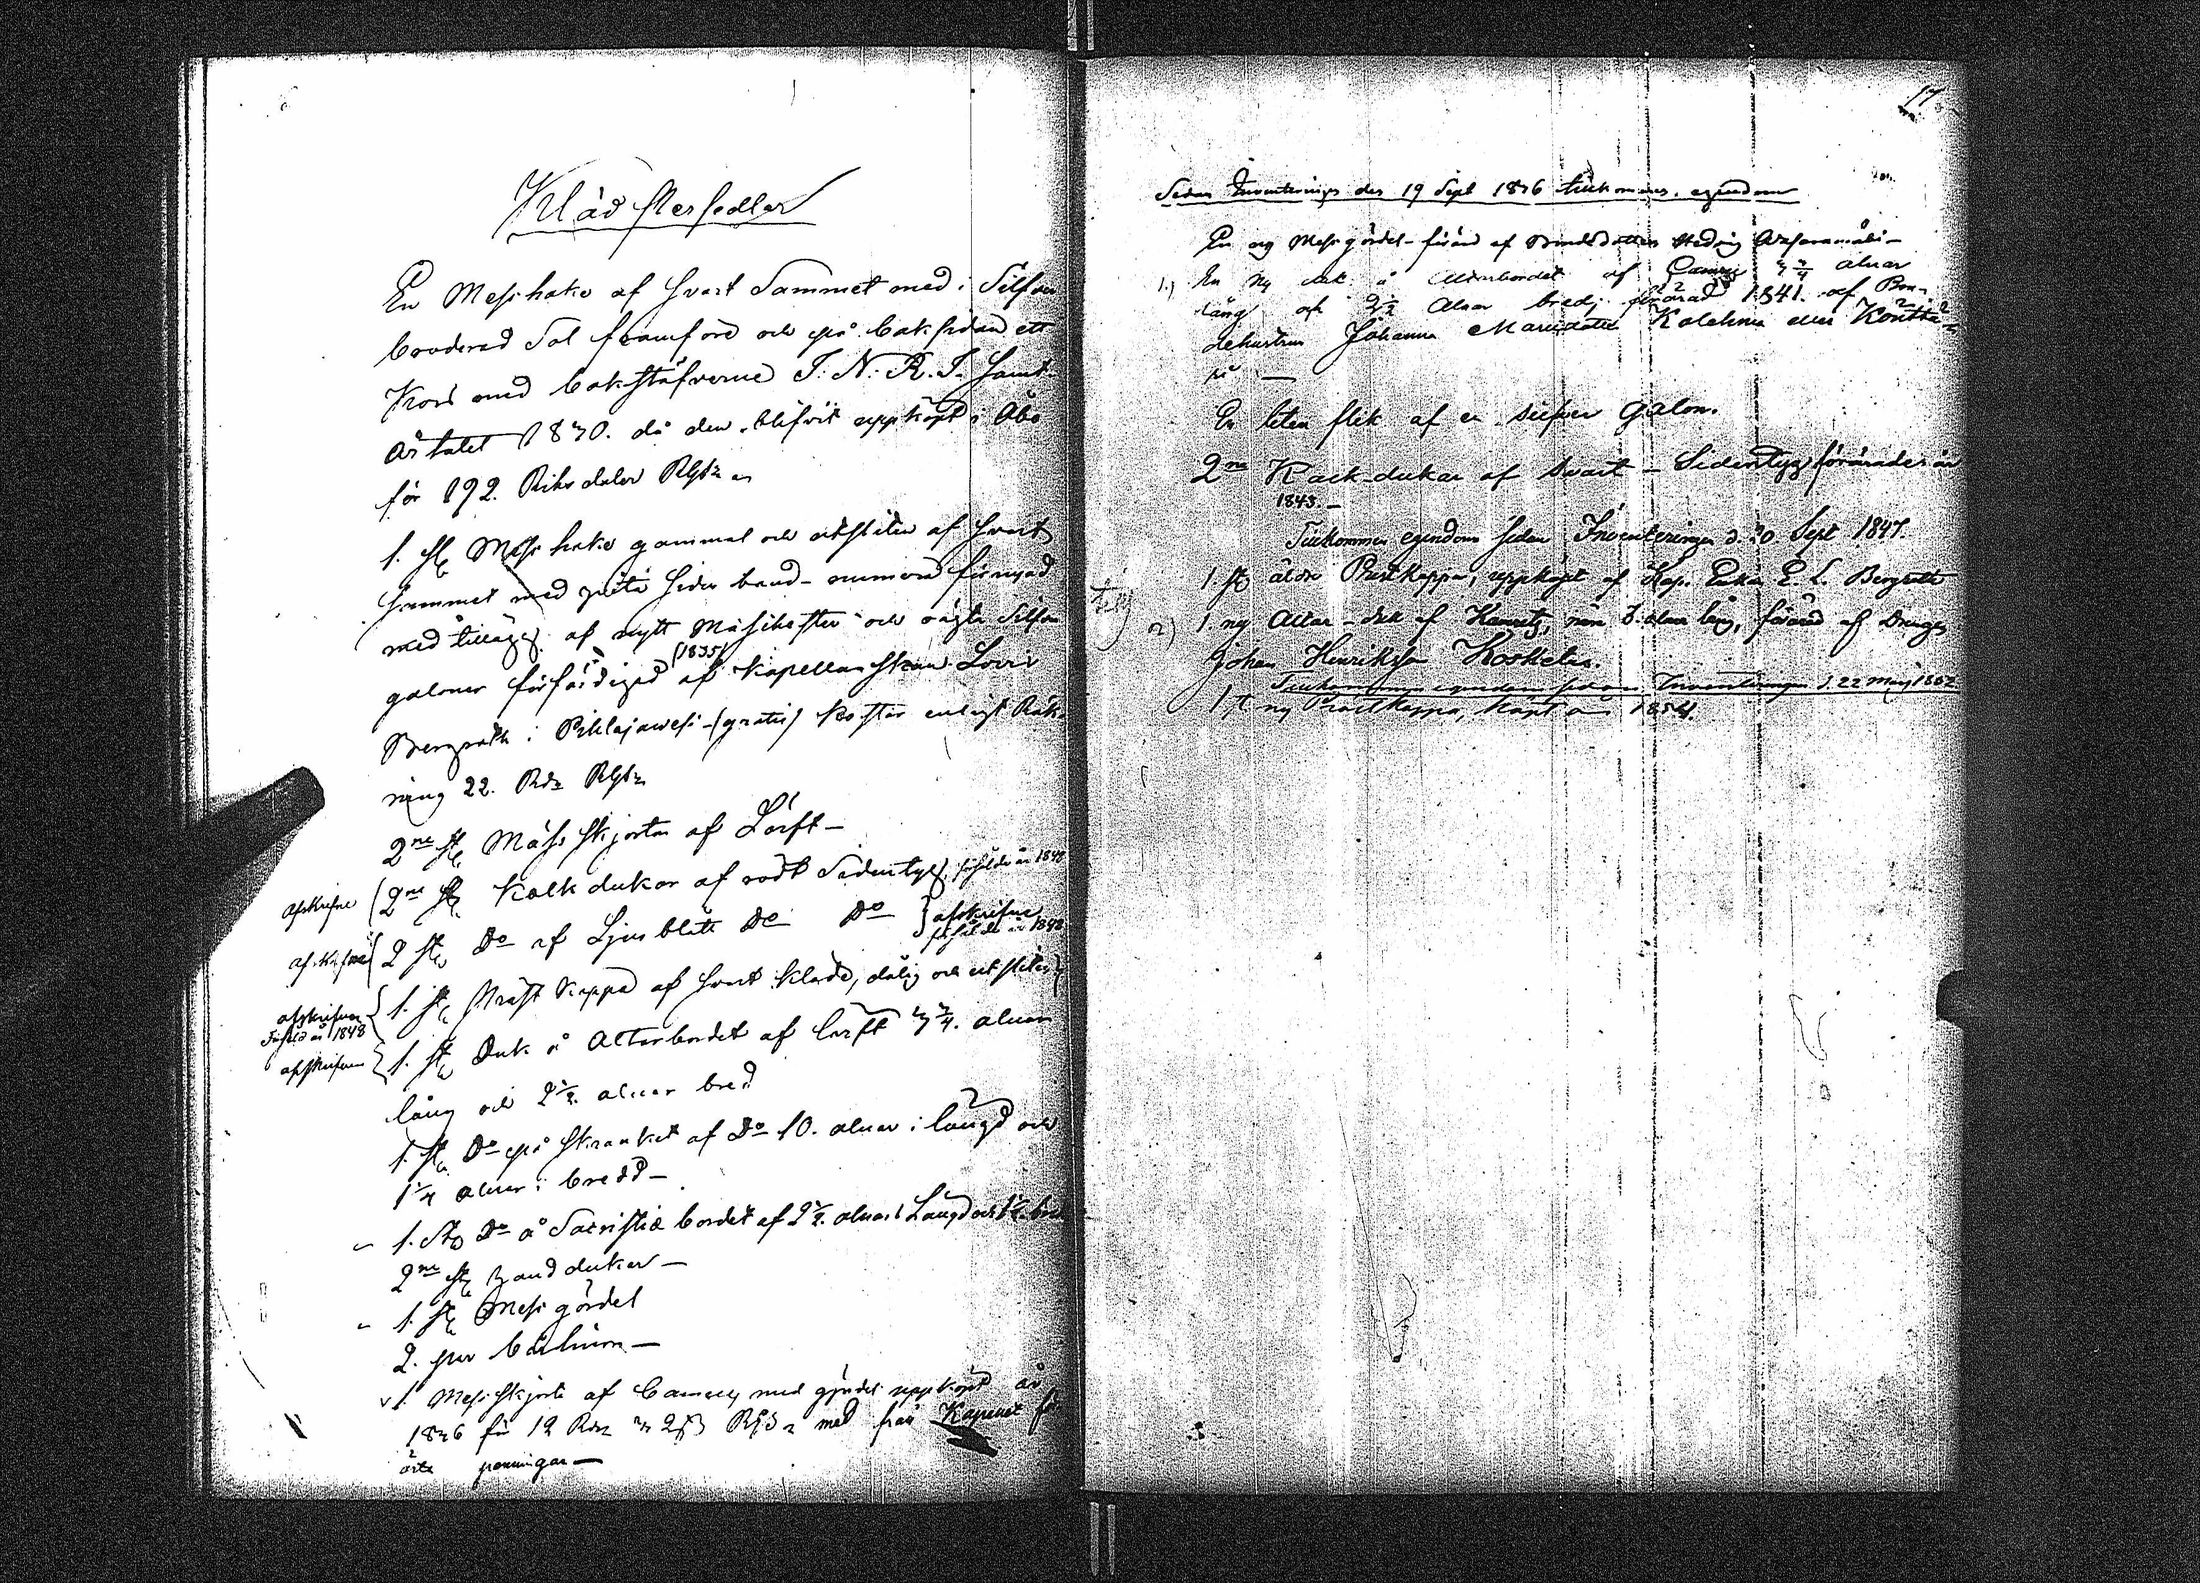 Klädpersedlar
En Messhake af svart Sammet med i Silfver
broderad Sol framföre och på baksidan ett
Kors med bokstäfverne I. N. R. I. samt
årtalet 1830. då den blifvit uppköpt i Åbo
för 192. Riksdaler Rgds
1. st. Messhake gammal och utsliten af svart
Sammet med hvita sidenband omvänd förnyad
med tillägg af nytt och ägta Silfver
galoner förfärdigad (1835) af Kapellanskan Lovis
Bergroth i Pihlajavesi (gratis) kostar enligt Räk-
ning 22. Rdr Rgds
2ne st. Mässskjortor af Lärft —
afskrifne 2ne st. Kalkdukar af rödt Sidentyg försålde år 1848
afskrifne 2 st. Do af Ljusblått Do Do afskrifne
försålde år 1848
afskrifven 1. st. Prästkappa af svart kläde, dålig och utsliten
Försåld år 1848
afskrifven 1. st. Duk å Altarbordet af lärft 7 3/4. alnar
lång och 2 1/2. alnar bred
1. st. Do på skranket af Do 10. alnar i längd och
1 1/4 alnar i bredd —
1. St. Do å Sacristiæ bordet af 2 1/2. alnars Längd och
2ne st. handdukar —
1. st. Messgördel
2. par bårlinor —
1 Messskjorta af med gördel uppköpt år
1836 för 12 Rdr Rgds med från Kapellet för-
ärte penningar —
17
Sedan Inventeringen den 19 Sept 1836 tillkommen egendom
En ny Messgördel förärd af Bondedottren Hedvig
1.) En ny duk å Altarbordet af 7 3/4 alnar
lång och 2 1/2 Alnar bred, förärad 1841. af Bon-
dehustrun Johanna Mariadotter Kolehma eller Könttä-
ri —
En liten flik af en silfver galon.
2ne Kalk-dukar af Svart Sidentyg förärade år
1843. —
Tillkommen egendom sedan Inventeringen d. 20 Sept 1847.
1 st äldre Prestkappa, uppköpt af Kap. Enkan E. L. Bergroth
2) 1 ny Altar-duk af 8 alnar lång, förärad af Drängen
Johan Henriksson Koskela.
Tillkommen egendom sedan Inventeringen d. 22 Maj 1852
1 st ny Prästkappa, köpt år 1854.